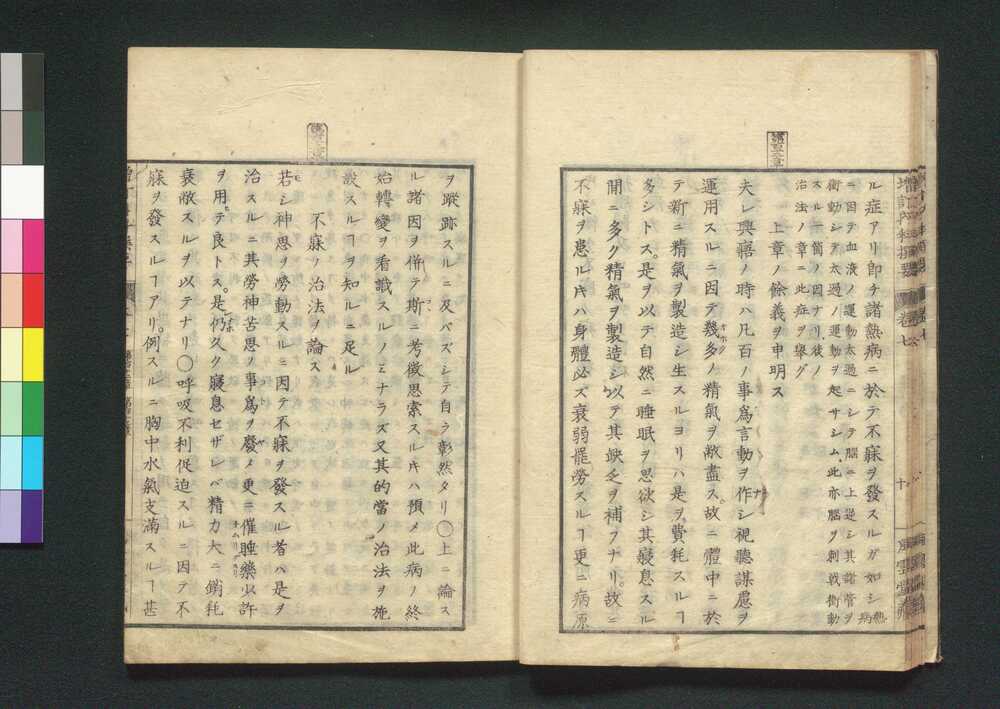 増訂内科撰要 卷七
第三章
ル症アリ即チ諸熱病ニ於テ不寐ヲ發スルガ如シ熱病
ニ因テ血液ノ運動太過ニシテ腦ニ上逆シ其諸管ヲ
衝動シテ太過ノ運動ヲ起サシム、此亦腦ヲ刺戟衝動
スルノ一箇ノ因ナリ、後ノ
治法ノ章ニ此症ヲ擧グ
上章ノ餘義ヲ申明ス
夫レ興寤ノ時ハ凡百ノ事爲言動ヲ作シ視聽謀慮ヲ
運用スルニ因テ幾多ノ精氣ヲ敝盡ス。故ニ體中ニ於
テ新ニ精氣ヲ製造シ生スルヨリハ是ヲ費耗スルヿ
多シトス。是ヲ以テ自然ニ睡眠ヲ思欲シ其寢息スル
間ニ多ク精氣ヲ製造シ以テ其缺乏ヲ補フナリ。故ニ
不寐ヲ患ル𪜈ハ身體必ズ衰弱罷勞スルヿ更ニ病原
ヲ蹤跡スルニ及バズシテ自ラ彰然タリ〇上ニ論ス
ル諸因ヲ併テ斯ニ考徴思索スル𪜈ハ預メ此病ノ終
始轉變ヲ看識スルノミナラズ又其的當ノ治法ヲ施
淡スルヿヲ知ルニ足ル
不寐ノ治法ヲ論ス
若シ神思ヲ勞動スルニ因テ不寐ヲ發スル者ハ是ヲ
治スルニ其勞神苦思ノ事爲ヲ廢メ更ニ催睡藥少許
ヲ用テ良トス。是仍久ク寢息セザレバ精力大ニ銷耗
衰敝スルヲ以テナリ〇呼吸不利促迫スルニ因テ不
寐ヲ發スルヿアリ。例スルニ胸中水氣支滿スルヿ甚